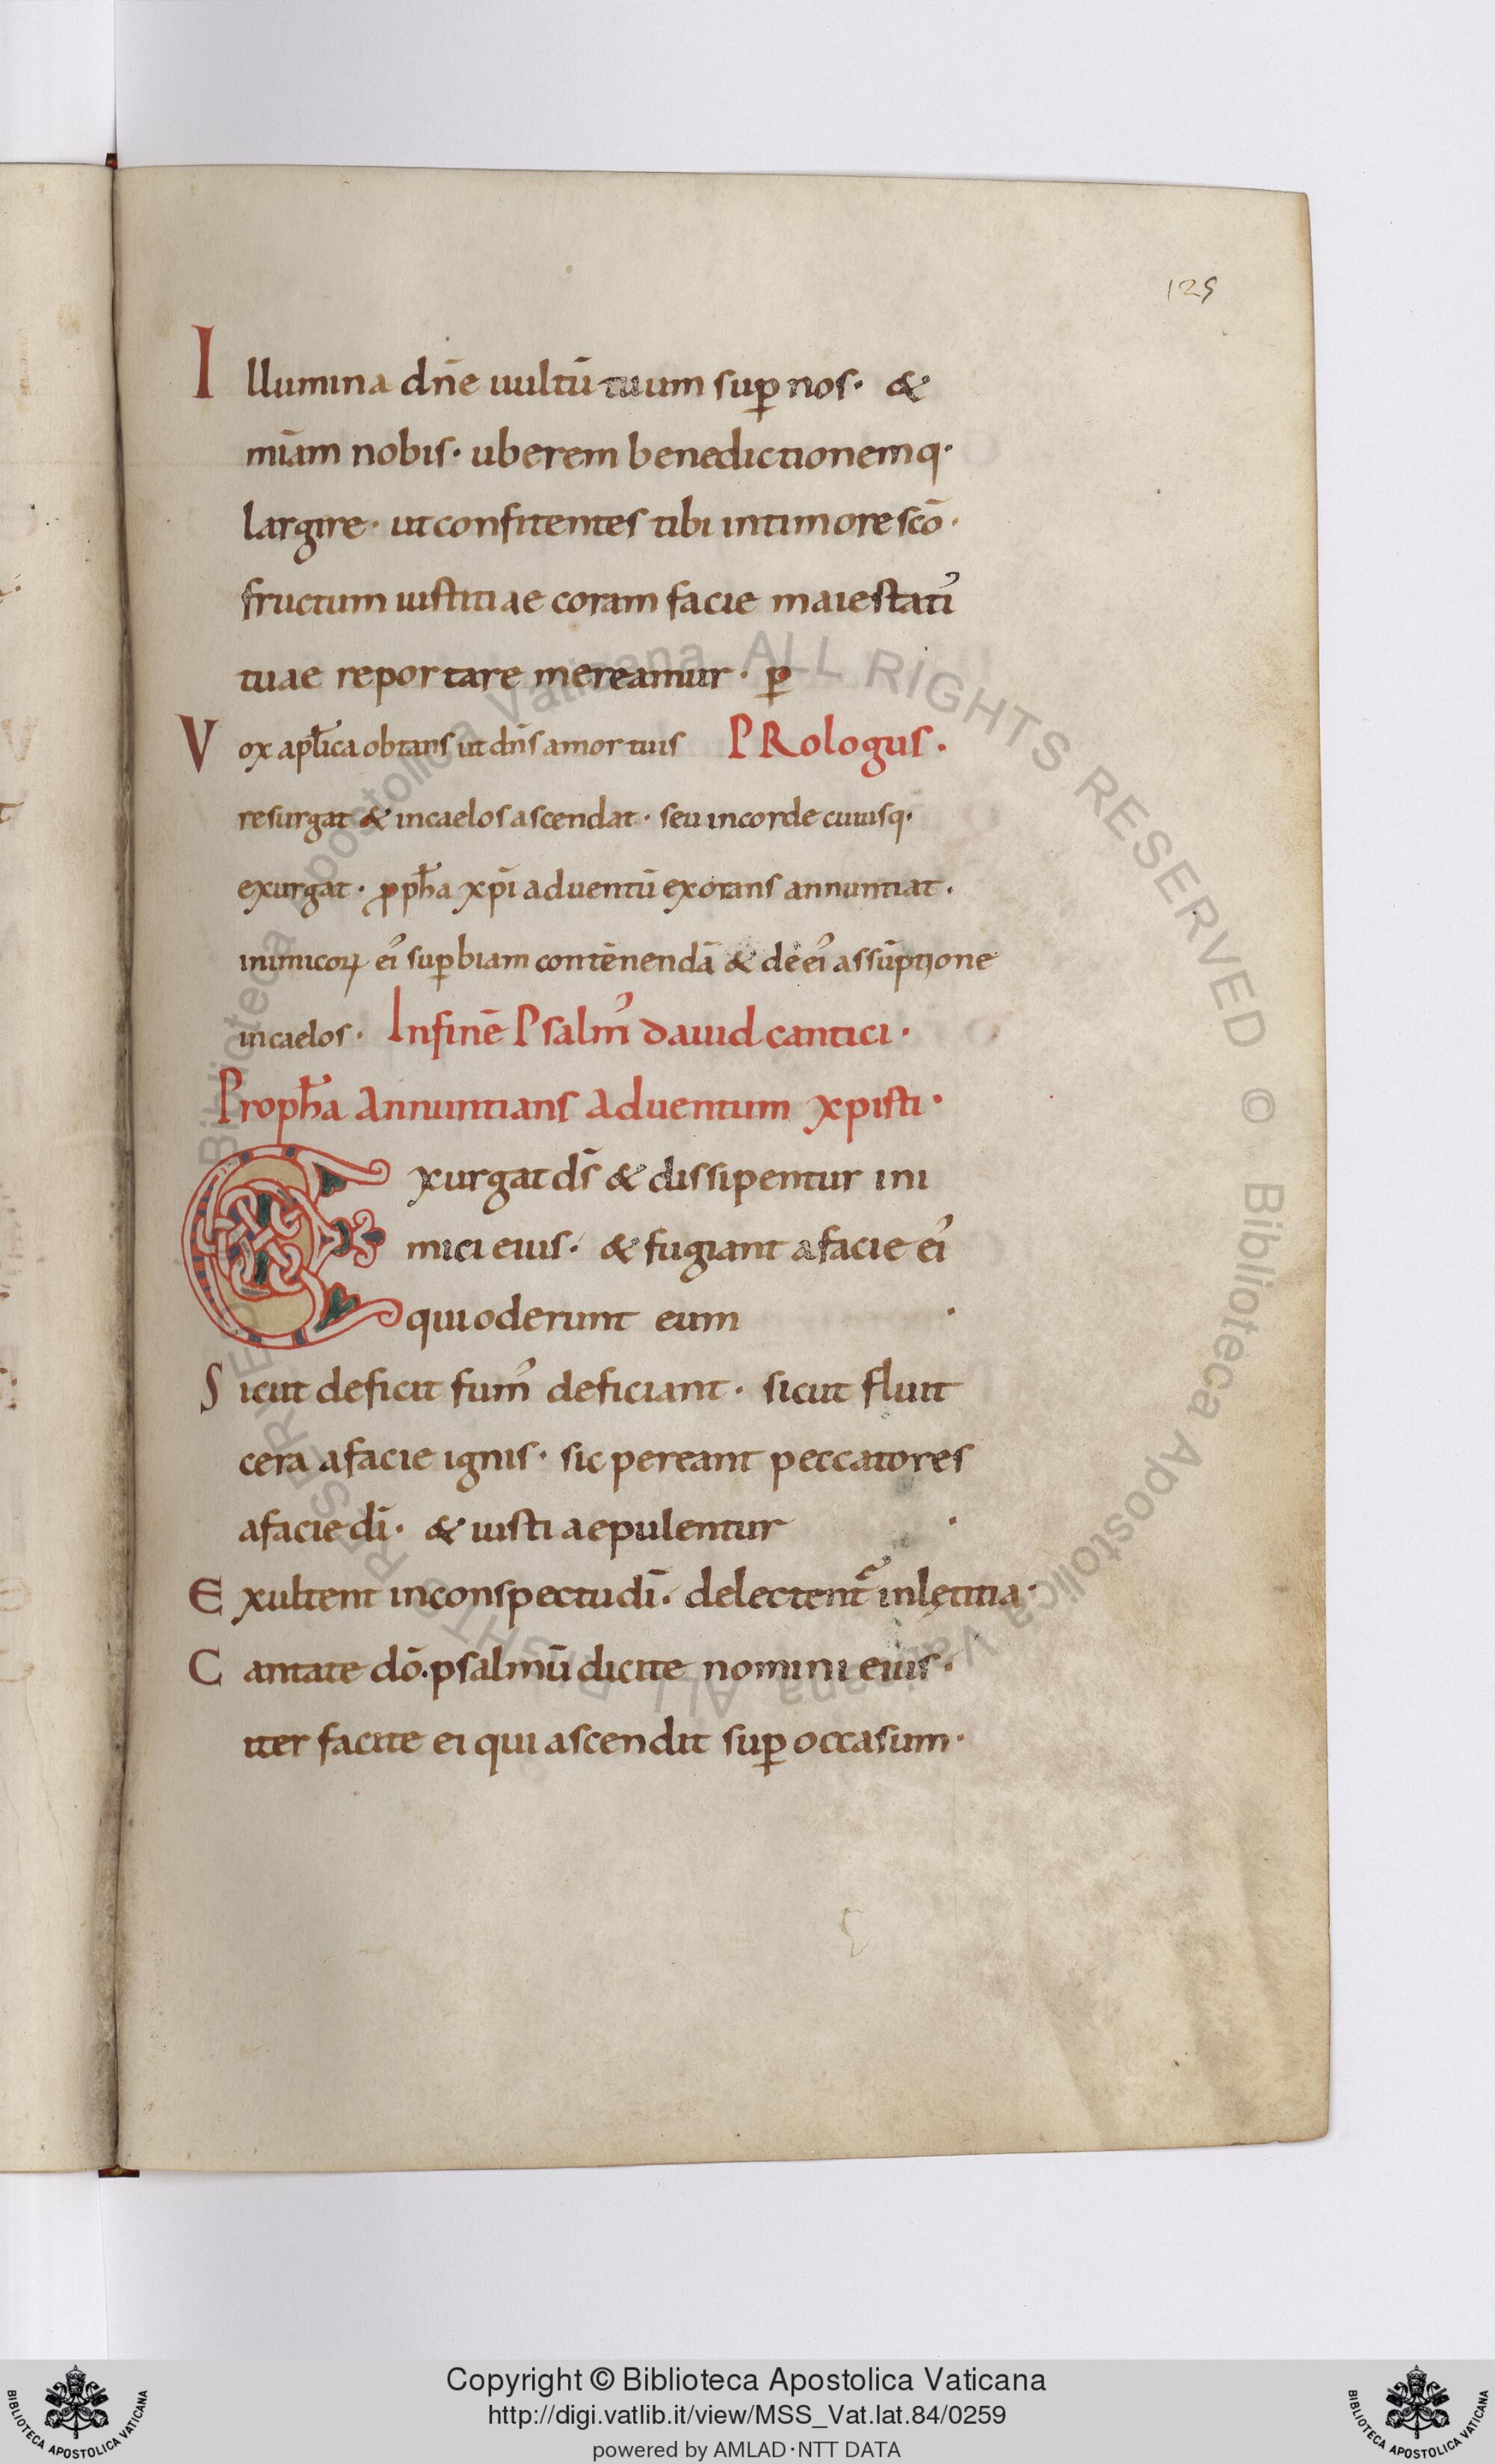 129
Illumina dn̄e uultū tuum suꝑ nos· &
miam̄ nobis· uberem benedictionemq·
largire· ut confitentes tibi intimore scō·
fructum iustitiae coram facie maiestati᾽
tuae reportare mereamur· ꝑ
Vox apl̄ica obtans ut dn̄s a mortuis PRologus.
resurgat & in caelos ascendat· seu in corde cuiusq·
exurgat· ꝓph̄a xp̄i aduentū exorans annuntiat.
inimicoꝝ ei᾽ suꝑbiam contēnendā & de ei᾽ assūptione
in caelos· In finē Psalm᾽ dauid cantici·
Proph̄a Annuntians Aduentum xpisti·
Exurgat ds̄ & dissipentur ini
mici eius· & fugiant a facie ei᾽
qui oderunt eum ·
Sicut deficit fum᾽ deficiant· sicut fluit
cera a facie ignis· sic pereant peccatores
a facie dī· & iusti aepulentur ·
Exultent in conspectu dī. delectent᷑ in lętitia·
Cantate dō. psalmū dicite nomini eius·
iter facite ei qui ascendit suꝑ occasum·
Biblioteca Apostolica Vaticana ALL RIGHTS RESERVED © Biblioteca Apostolica Vaticana ALL RIGHTS RESERVED
Copyright © Biblioteca Apostolica Vaticana
http://digi.vatlib.it/view/MSS_Vat.lat.84/0259
powered by AMLAD·NTT DATA
BIBLIOTECA APOSTOLICA VATICANA
BIBLIOTECA APOSTOLICA VATICANA